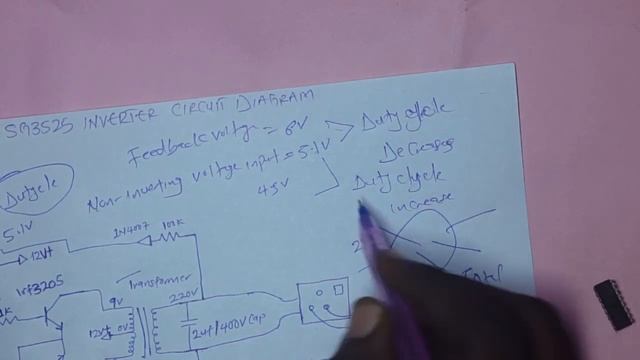 SG3525 INVERTER CIRCUIT DIAGRAM
Feedback voltge = 6V
Duty cycle
Decrease
Non-inverting voltage input = 5.1V
4.5V
Duty cycle
increase
Dutycycle
5.1V
12V+
IN4007
100K
irf3205
Transformer
9V
220V
12V+
0V
2uf/400V Cap